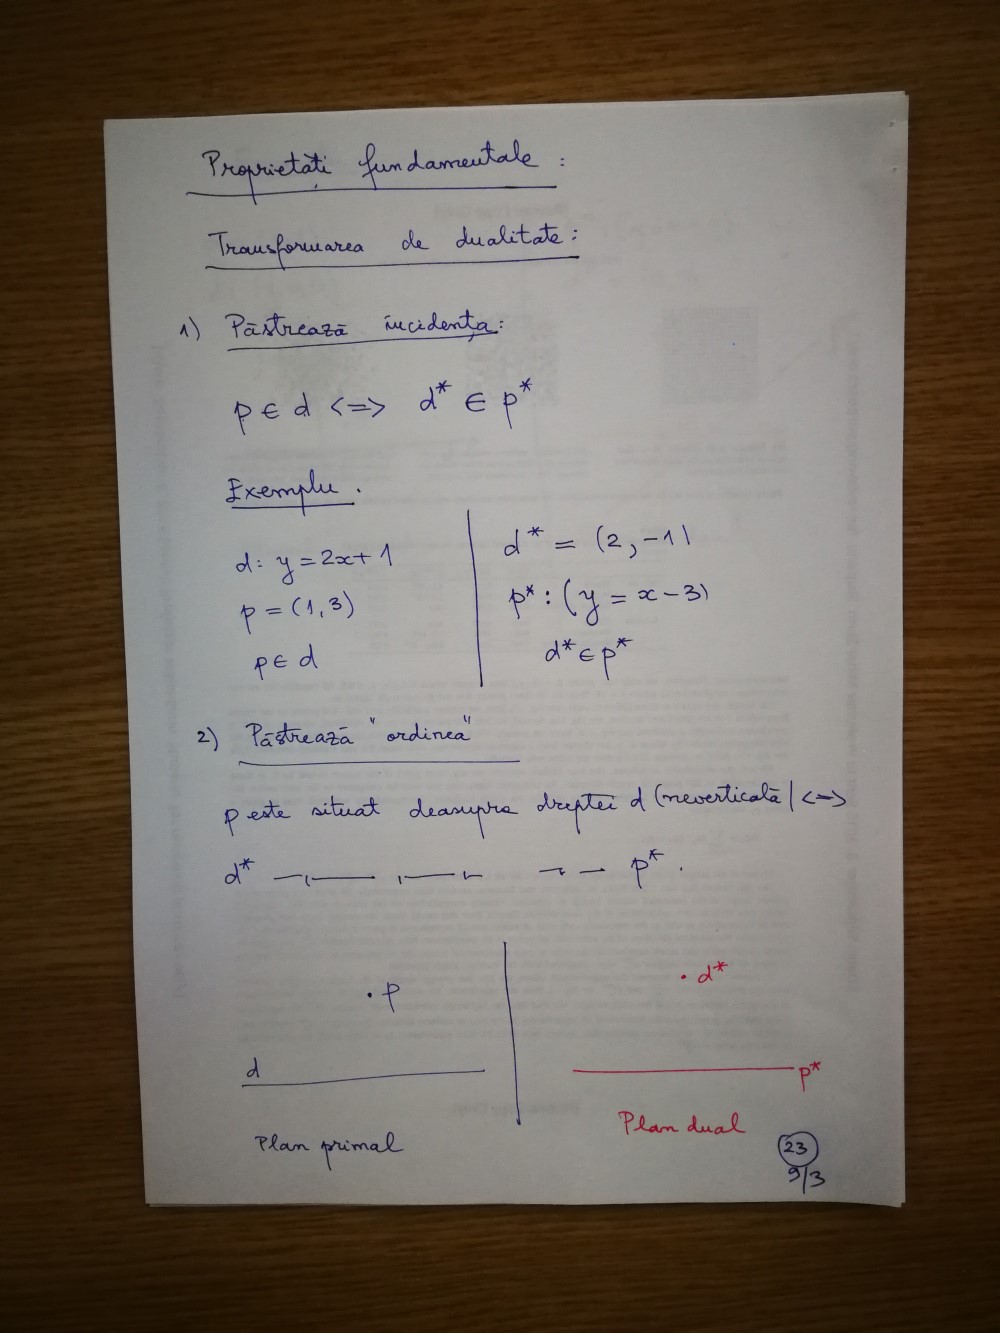 Proprietăți fundamentale :
Transformarea de dualitate :
1) Păstrează incidența :
p ∈ d <=> d* ∈ p*
Exemplu .
d: y = 2x + 1
p = (1, 3)
p ∈ d
d* = (2, -1)
p* : (y = x - 3)
d* ∈ p*
2) Păstrează "ordinea"
p este situat deasupra dreptei d (neverticală) <=>
d* —,,— —,,— —,,— p* .
. p
d
Plan primal
. d*
p*
Plan dual
23
9/3